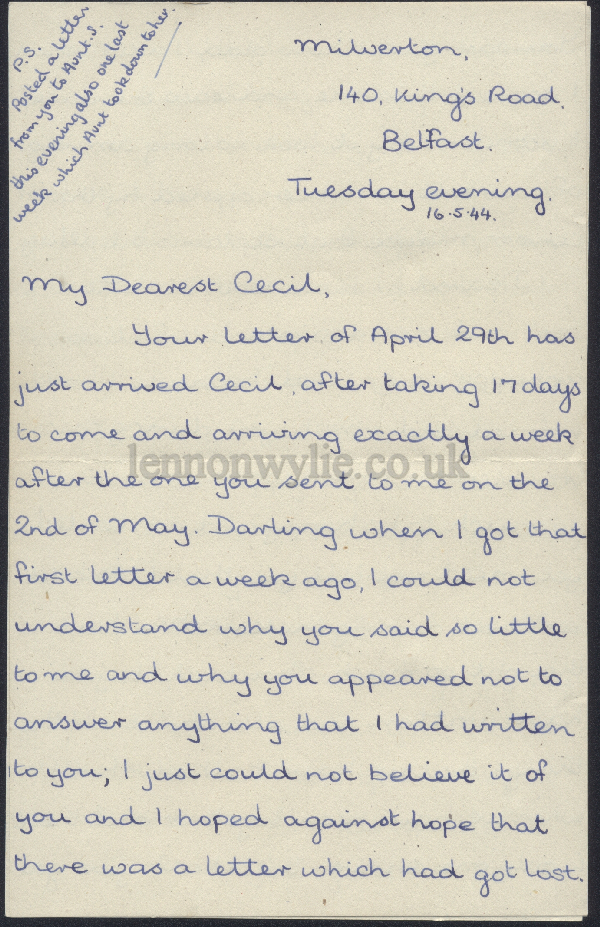 P.S.
Posted a letter
from you to Aunt. S.
this evening also one last
week which Aunt took down to her.
Milverton,
140, King's Road,
Belfast.
Tuesday evening.
16.5.44.
My Dearest Cecil,
Your letter of April 29th has
just arrived Cecil, after taking 17 days
to come and arriving exactly a week
lennonwylie.co.uk
after the one you sent to me on the
2nd of May. Darling when I got that
first letter a week ago, I could not
understand why you said so little
to me and why you appeared not to
answer anything that I had written
to you; I just could not believe it of
you and I hoped against hope that
there was a letter which had got lost.